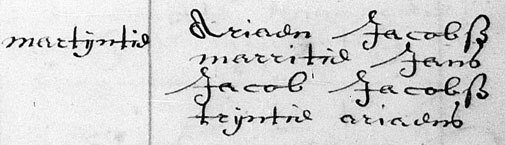 martijntie
Ariaen Jacobsz
marritie Jans
Jacob Jacobsz
trijntie ariaens